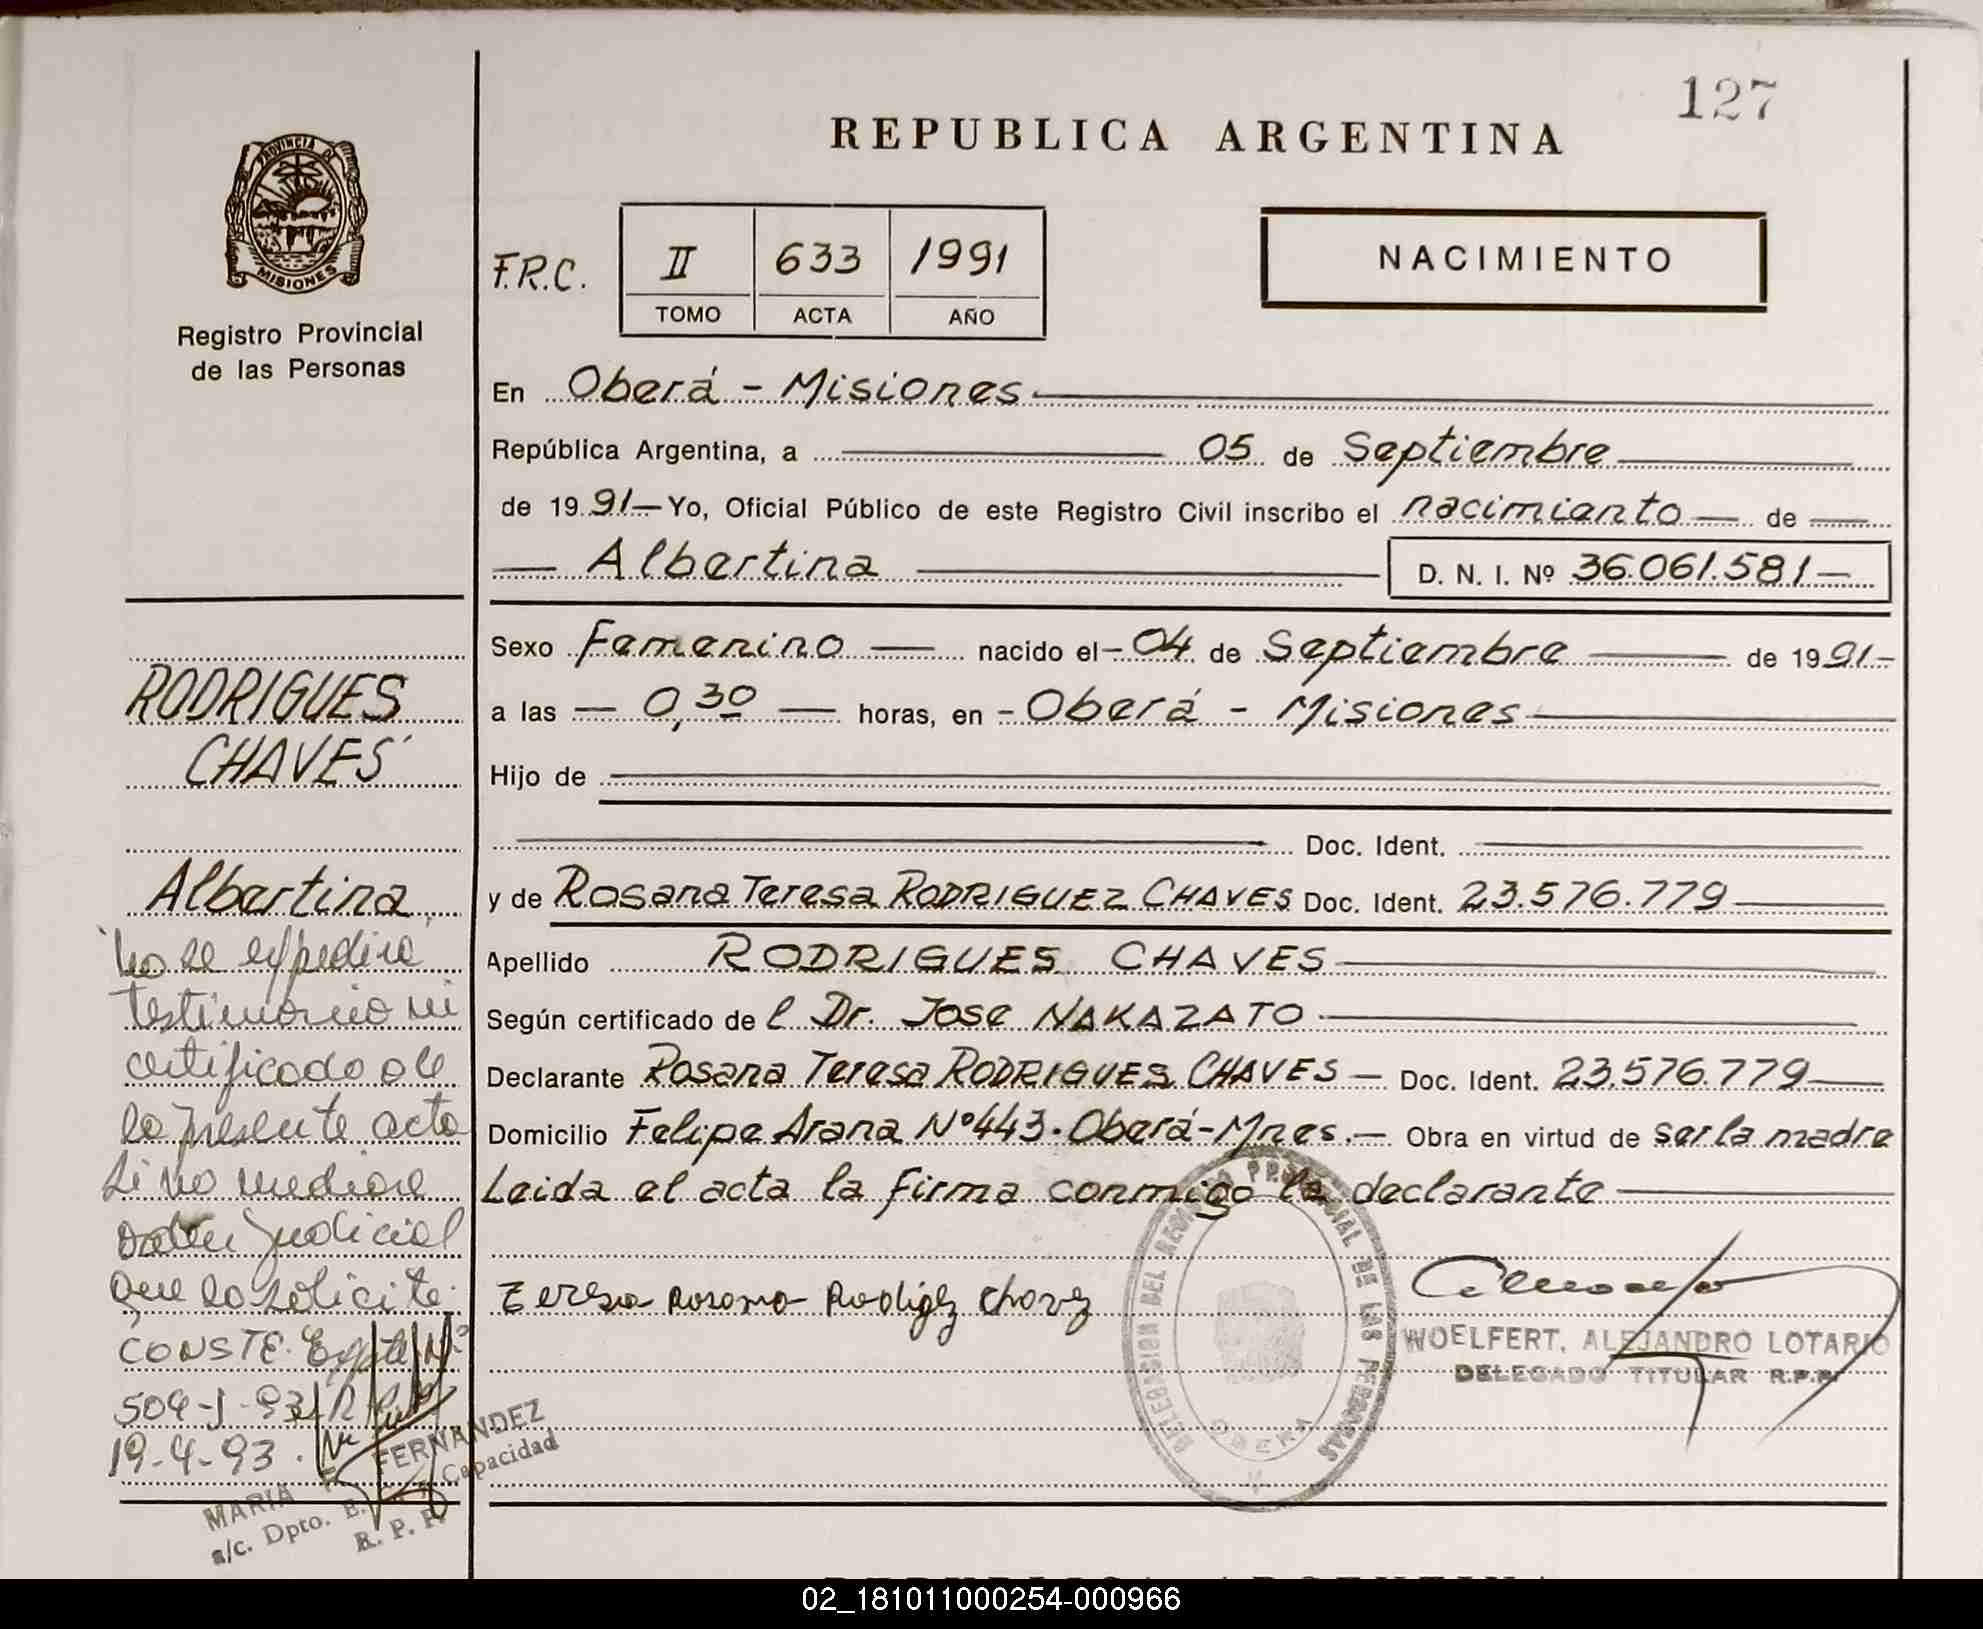 127
REPUBLICA ARGENTINA
PROVINCIA DE
MISIONES
Registro Provincial
de las Personas
F.R.C.
II 633 1991
TOMO ACTA AÑO
NACIMIENTO
En Oberá - Misiones
República Argentina, a 05 de Septiembre
de 1991 Yo, Oficial Público de este Registro Civil inscribo el nacimianto de
Albertina D. N. I. Nº 36.061.581
Sexo Femenino nacido el 04 de Septiembre de 1991
a las 0,30 horas, en Oberá - Misiones
Hijo de
Doc. Ident.
y de Rosana Teresa RODRIGUEZ CHAVES Doc. Ident. 23.576.779
Apellido RODRIGUES CHAVES
Según certificado de l Dr. Jose NAKAZATO
Declarante Rosana Teresa RODRIGUES CHAVES Doc. Ident. 23.576.779
Domicilio Felipe Arana Nº 443. Oberá-Mnes. Obra en virtud de ser la madre
Leida el acta la firma conmigo la declarante
Teresa Rosana Rodigz Chavz
DELEGACION DEL REGISTRO PROVINCIAL DE LAS PERSONAS
OBERA
WOELFERT, ALEJANDRO LOTARIO
DELEGADO TITULAR R.P.P.
RODRIGUES
CHAVES
Albertina
"No se expedira
testimonio ni
certificado de
la presente acta
si no mediare
orden judicial
que lo solicite.
"CONSTE. Expte Nº
509-J-93
19-4-93.
MARIA F. FERNANDEZ
a/c. Dpto. E. Capacidad
R. P. P.
REPUBLICA ARGENTINA
02_181011000254-000966